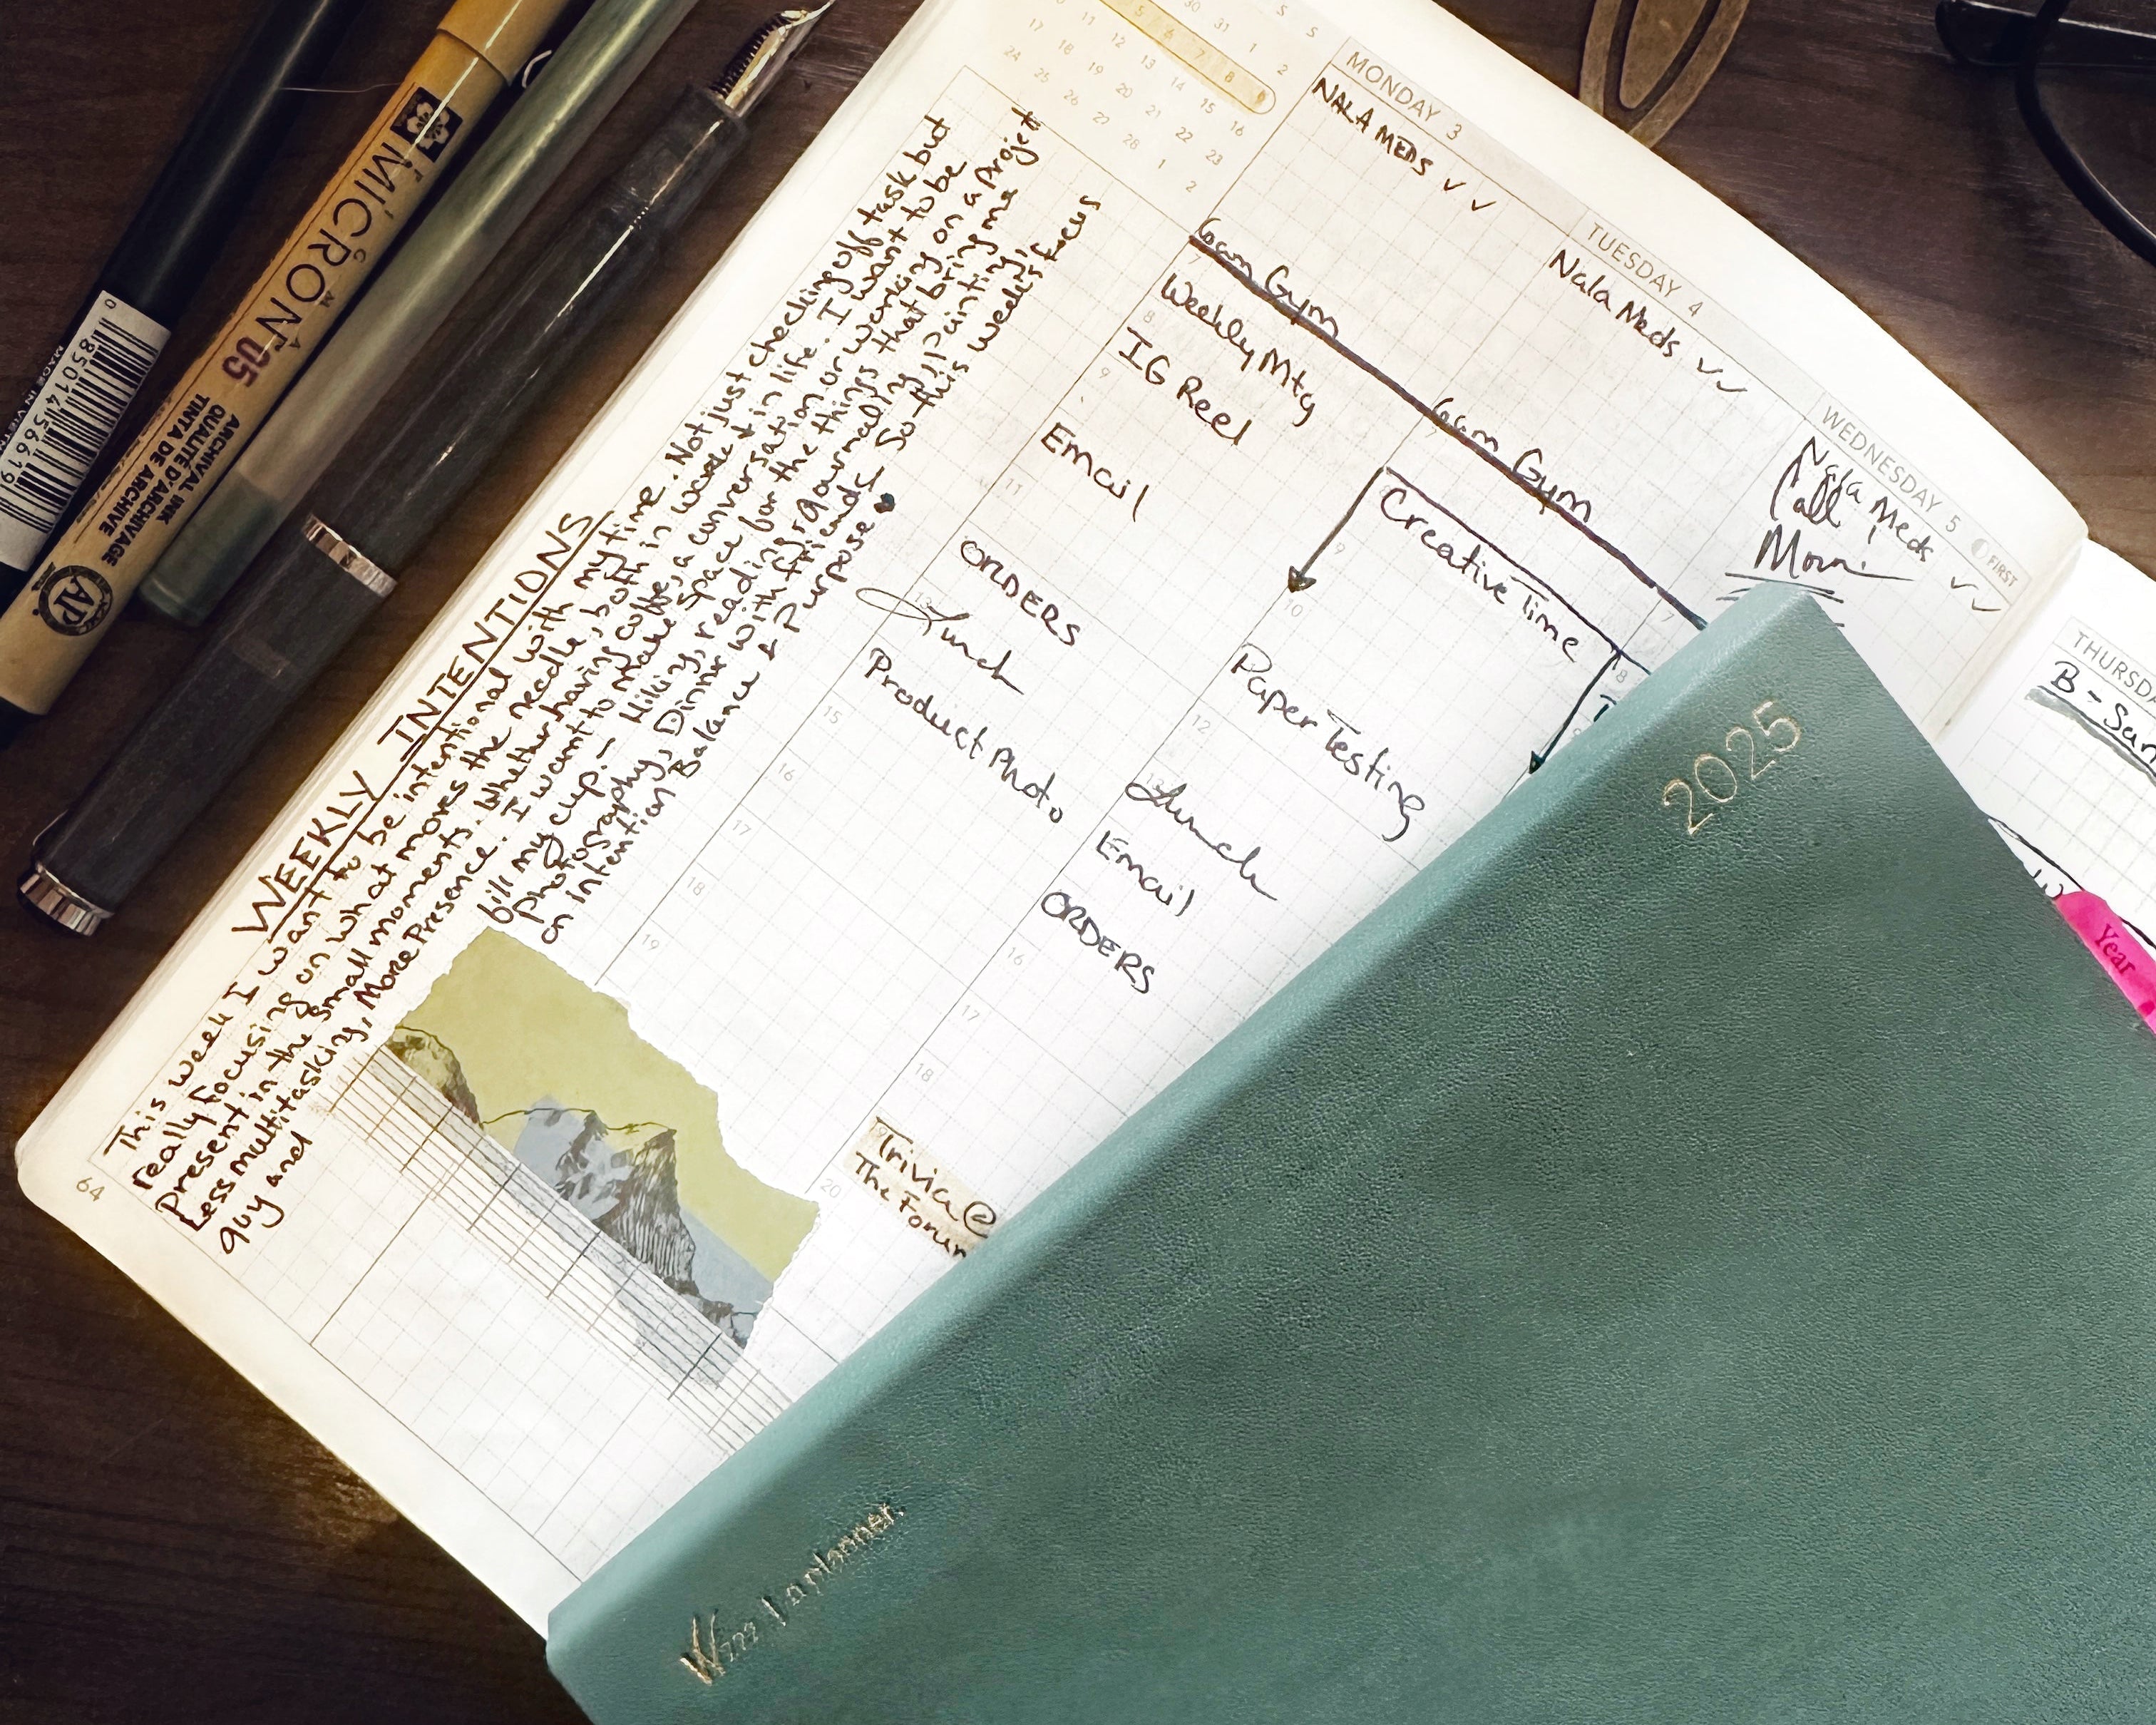 MICRON
05
ARCHIVAL INK
QUALITÉ D'ARCHIVAGE
TINTA DE ARCHIVE
AP
0 18501 45661 9
30 31 1 2
5 6 7 8 9
11 12 13 14 15 16
17 18 19 20 21 22 23
24 25 26 27 28 1 2
WEEKLY INTENTIONS
This week I want to be intentional with my time. Not just checking off task but
really focusing on what moves the needle, both in work & in life. I want to be
Present in the small moments. Whether having coffee, a conversation or working on a Project
Less multitasking, More Presence. I want to make space for the things that bring me
guy and
fill my cup - Hiking, reading, Journaling, Painting,
photography, Dinner with friends. So this week's focus
on intention Balance & Purpose.
64
MONDAY 3
NALA MEDS ✓ ✓
6am Gym
7
Weekly Mtg
8
IG Reel
9
Email
11
ORDERS
13
Lunch
Product Photo
15
16
17
18
19
TUESDAY 4
Nala Meds ✓✓
6am Gym
7
Creative Time
9
10
Paper Testing
12
13
Lunch
Email
ORDERS
16
17
18
Trivia @
The Forum
20
WEDNESDAY 5
FIRST
Nala Meds ✓✓
Call
Mom
7
8
THURSDA
B - Sam
Year
2025
planner.